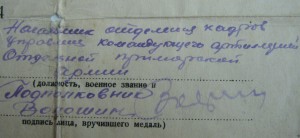 Начальник отделения кадров
Управлен. командующего артиллерией
Отдельной приморской
армии
(должность, военное звание и
Подполковник
Волошин
подпись лица, вручившего медаль)